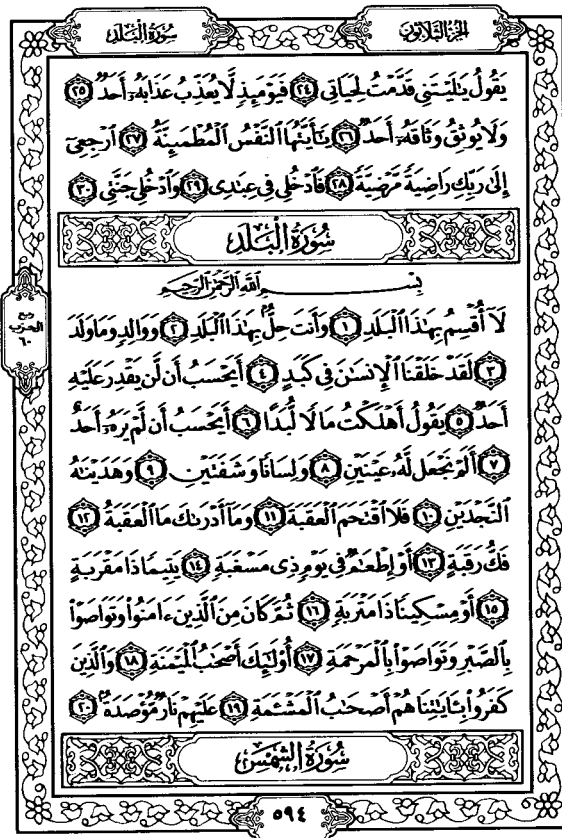 الجزء الثلاثون
سورة البلد
يَقُولُ يَٰلَيْتَنِي قَدَّمْتُ لِحَيَاتِي ٢٤ فَيَوْمَئِذٍ لَّا يُعَذِّبُ عَذَابَهُۥٓ أَحَدٌ ٢٥
وَلَا يُوثِقُ وَثَاقَهُۥٓ أَحَدٌ ٢٦ يَٰٓأَيَّتُهَا ٱلنَّفْسُ ٱلْمُطْمَئِنَّةُ ٢٧ ٱرْجِعِىٓ
إِلَىٰ رَبِّكِ رَاضِيَةً مَّرْضِيَّةً ٢٨ فَٱدْخُلِى فِى عِبَٰدِى ٢٩ وَٱدْخُلِى جَنَّتِى ٣٠
سُورَةُ الْبَلَدِ
بِسْمِ ٱللَّهِ ٱلرَّحْمَٰنِ ٱلرَّحِيمِ
لَآ أُقْسِمُ بِهَٰذَا ٱلْبَلَدِ ١ وَأَنتَ حِلٌّۢ بِهَٰذَا ٱلْبَلَدِ ٢ وَوَالِدٍ وَمَا وَلَدَ
٣ لَقَدْ خَلَقْنَا ٱلْإِنسَٰنَ فِى كَبَدٍ ٤ أَيَحْسَبُ أَن لَّن يَقْدِرَ عَلَيْهِ
أَحَدٌ ٥ يَقُولُ أَهْلَكْتُ مَالًا لُّبَدًا ٦ أَيَحْسَبُ أَن لَّمْ يَرَهُۥٓ أَحَدٌ
٧ أَلَمْ نَجْعَل لَّهُۥ عَيْنَيْنِ ٨ وَلِسَانًا وَشَفَتَيْنِ ٩ وَهَدَيْنَٰهُ
ٱلنَّجْدَيْنِ ١٠ فَلَا ٱقْتَحَمَ ٱلْعَقَبَةَ ١١ وَمَآ أَدْرَىٰكَ مَا ٱلْعَقَبَةُ ١٢
فَكُّ رَقَبَةٍ ١٣ أَوْ إِطْعَٰمٌ فِى يَوْمٍ ذِى مَسْغَبَةٍ ١٤ يَتِيمًا ذَا مَقْرَبَةٍ
١٥ أَوْ مِسْكِينًا ذَا مَتْرَبَةٍ ١٦ ثُمَّ كَانَ مِنَ ٱلَّذِينَ ءَامَنُوا۟ وَتَوَاصَوْا۟
بِٱلصَّبْرِ وَتَوَاصَوْا۟ بِٱلْمَرْحَمَةِ ١٧ أُو۟لَٰٓئِكَ أَصْحَٰبُ ٱلْمَيْمَنَةِ ١٨ وَٱلَّذِينَ
كَفَرُوا۟ بِـَٔايَٰتِنَا هُمْ أَصْحَٰبُ ٱلْمَشْـَٔمَةِ ١٩ عَلَيْهِمْ نَارٌ مُّؤْصَدَةٌۢ ٢٠
سُورَةُ الشَّمْسِ
ربع
الحزب
٦٠
٥٩٤